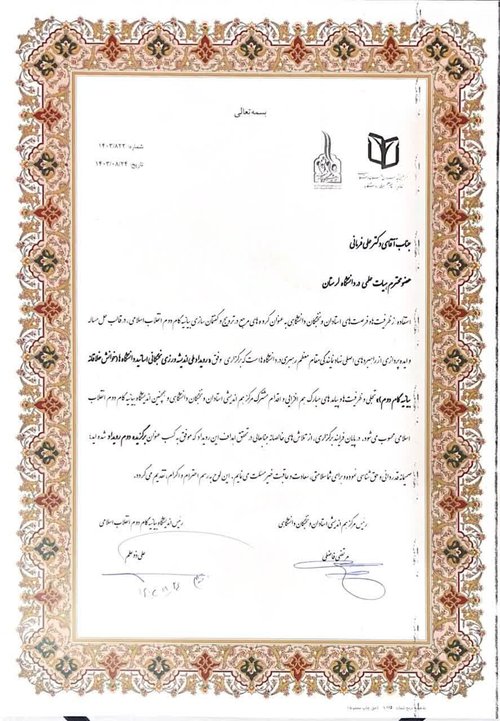 بسمه تعالی
شماره: ۱۴۰۳/۸۲۳
تاریخ: ۱۴۰۳/۰۸/۲۴
جناب آقای دکتر علی قربانی
عضو محترم هیات علمی در دانشگاه لرستان
استفاده از ظرفیت‌ها و فرصت‌های استادان و نخبگان دانشگاهی به عنوان گروه‌های مرجع در ترویج و گفتمان سازی بیانیه گام دوم انقلاب اسلامی، در قالب حل مساله
و ایده پردازی از راهبردهای اصلی نهاد نمایندگی مقام معظم رهبری در دانشگاه‌ها است که برگزاری موفق «رویداد ملی اندیشه ورزی نخبگانی اساتید دانشگاه با خوانش خلاقانه
بیانیه گام دوم»، تجلی و ظرفیت‌ها و پیامدهای مبارک هم افزایی و اقدام مشترک مرکز هم اندیشی استادان و نخبگان دانشگاهی و همچنین اندیشگاه بیانیه گام دوم انقلاب
اسلامی محسوب می‌شود. در پایان فرایند برگزاری، از تلاش‌های خالصانه جنابعالی در تحقق اهداف این رویداد که موفق به کسب عنوان برگزیده دوم رویداد شده اید؛
صمیمانه قدردانی و حق شناسی نموده و برای شما سلامتی، سعادت و عاقبت خیر مسئلت می‌نمایم. این لوح به رسم احترام و اکرام، تقدیم می‌گردد.
رئیس مرکز هم اندیشی استادان و نخبگان دانشگاهی
رئیس اندیشگاه بیانیه گام دوم انقلاب اسلامی
مرتضی فاضلی
علی ذوعلم